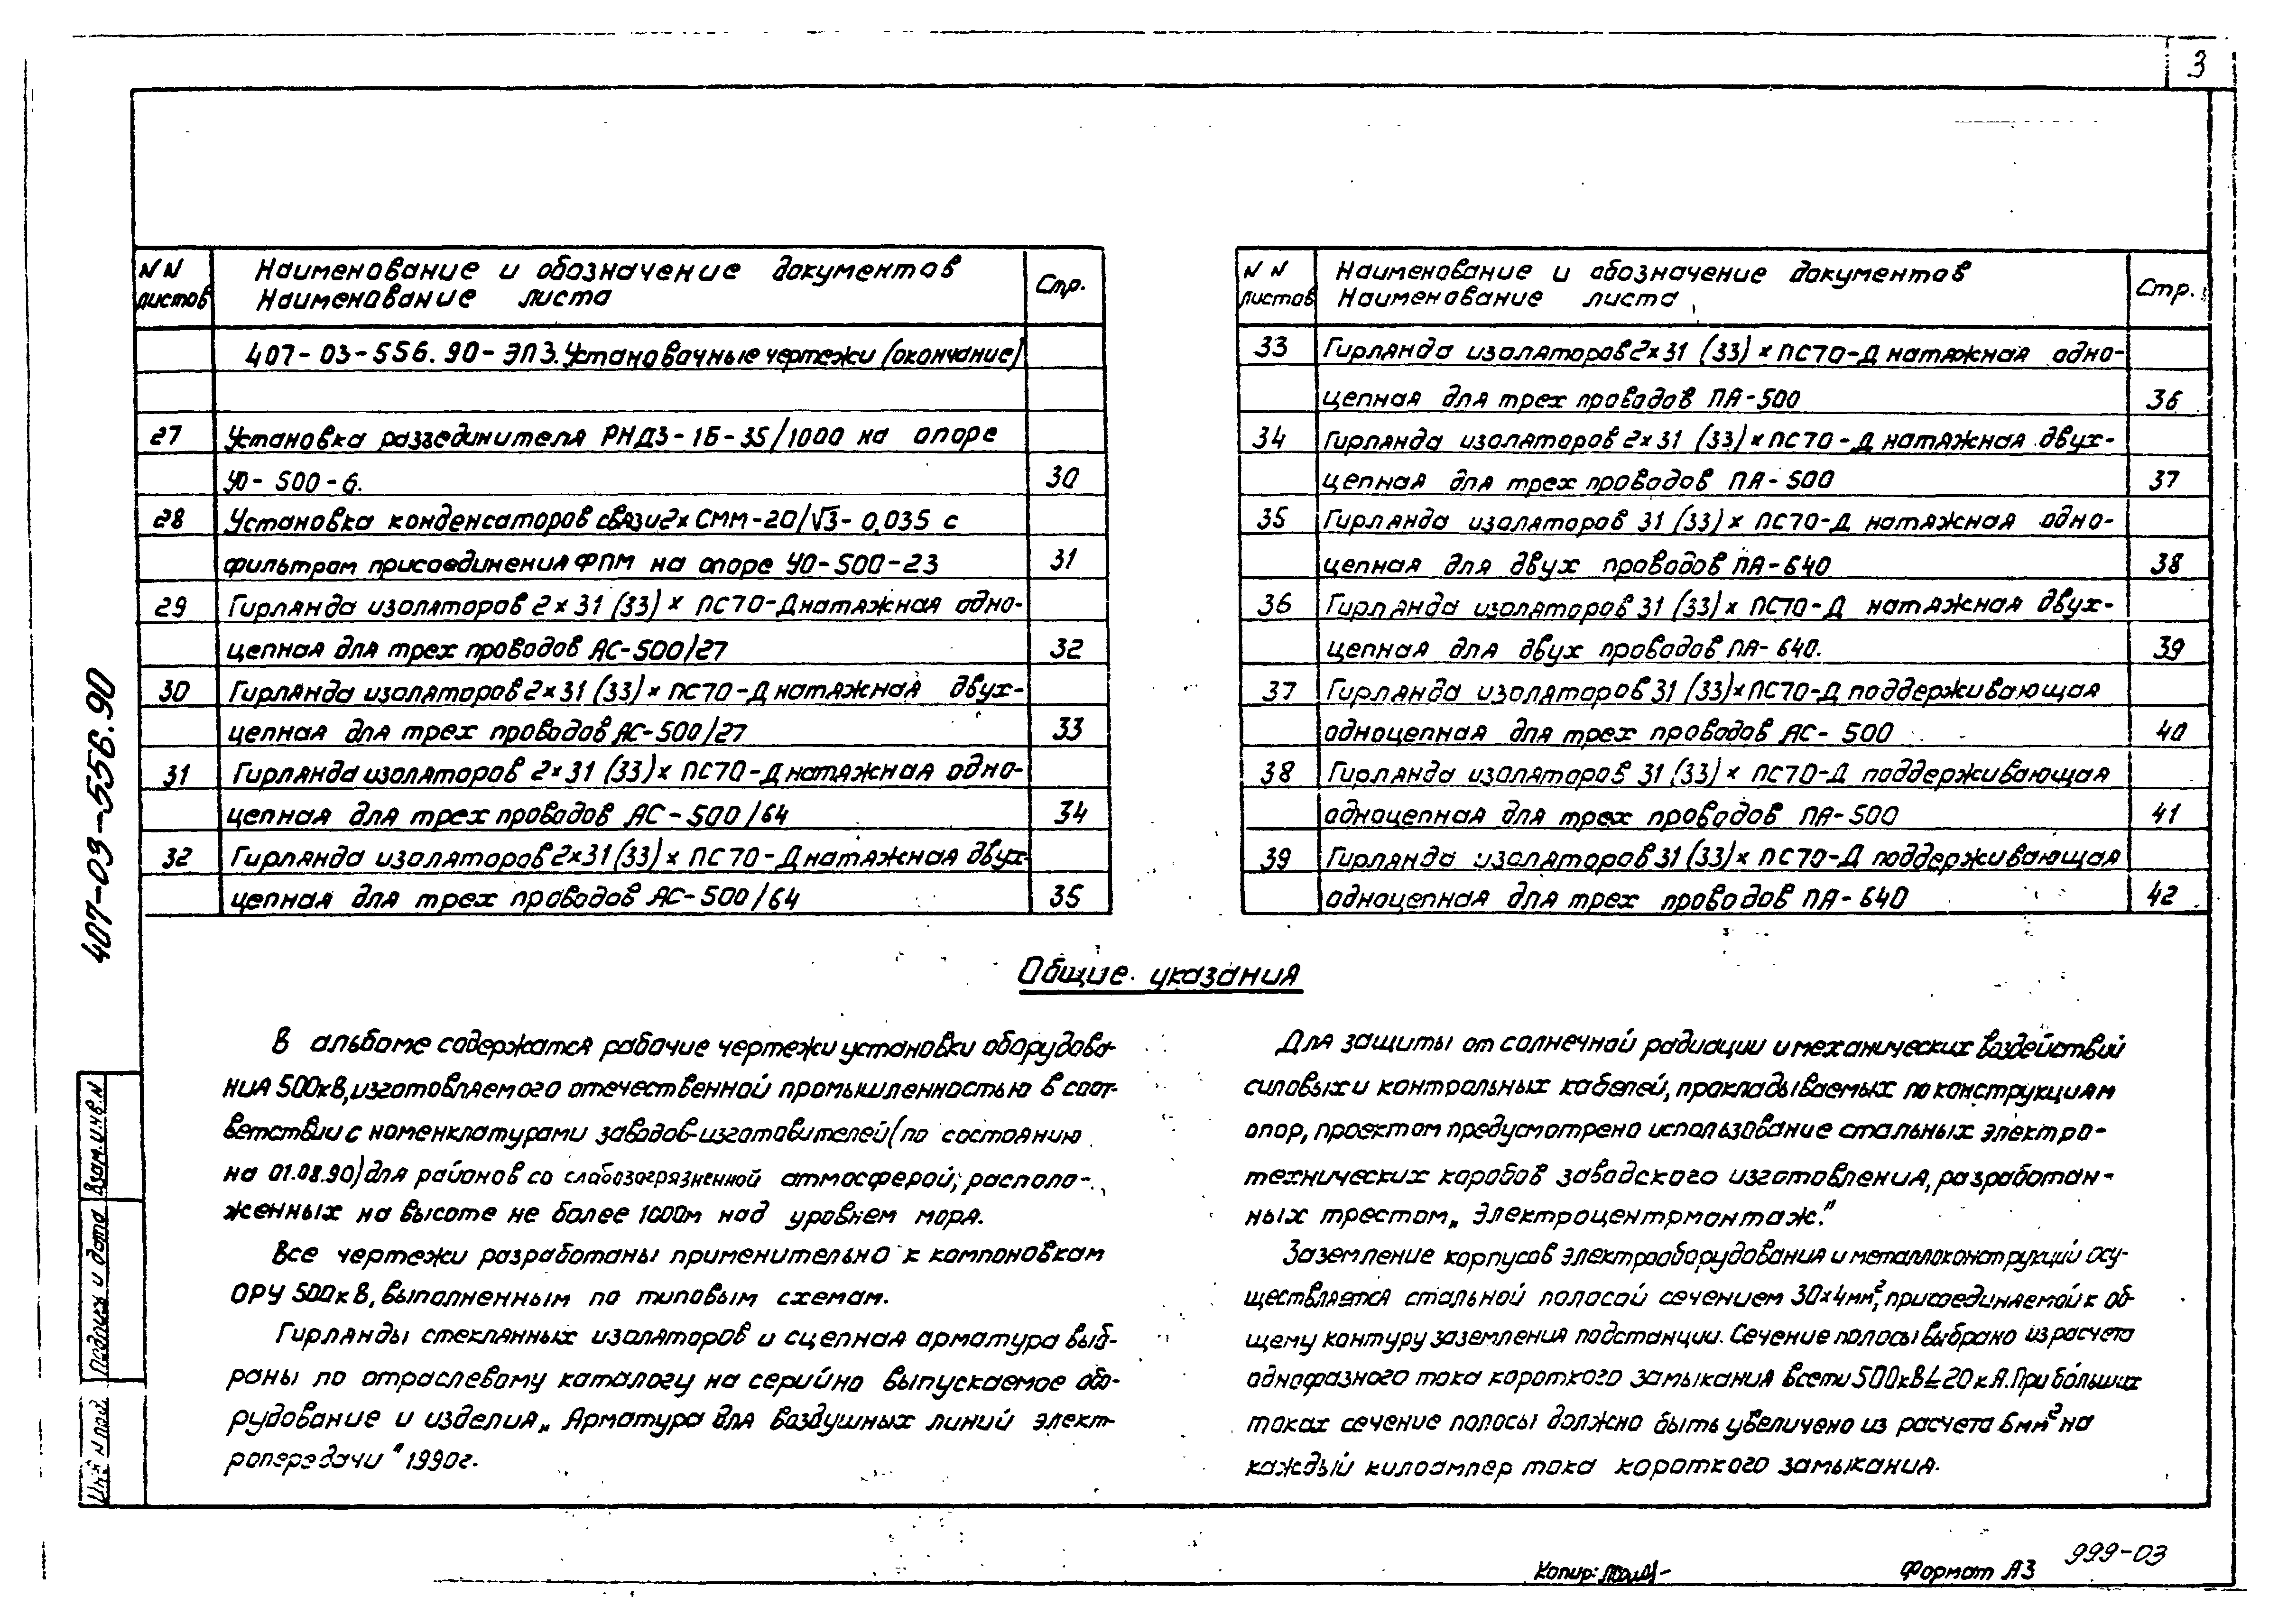 3
NN Наименование и обозначение документов Стр.
листов Наименование листа
407-03-556.90-ЭП3. Установочные чертежи (окончание)
27 Установка разъединителя РНДЗ-1Б-35/1000 на опоре
УО-500-6. 30
28 Установка конденсаторов связи 2х СММ-20/√3-0,035 с
фильтром присоединения ФПМ на опоре УО-500-23 31
29 Гирлянда изоляторов 2×31 (33)× ПС70-Д натяжная одно-
цепная для трех проводов АС-500/27 32
30 Гирлянда изоляторов 2×31 (33)× ПС70-Д натяжная двух-
цепная для трех проводов АС-500/27 33
31 Гирлянда изоляторов 2×31 (33)× ПС70-Д натяжная одно-
цепная для трех проводов АС-500/64 34
32 Гирлянда изоляторов 2×31 (33)× ПС70-Д натяжная двух-
цепная для трех проводов АС-500/64 35
NN Наименование и обозначение документов Стр.
листов Наименование листа
33 Гирлянда изоляторов 2×31 (33)× ПС70-Д натяжная одно-
цепная для трех проводов ПА-500 36
34 Гирлянда изоляторов 2×31 (33)× ПС70-Д натяжная двух-
цепная для трех проводов ПА-500 37
35 Гирлянда изоляторов 31 (33)× ПС70-Д натяжная одно-
цепная для двух проводов ПА-640 38
36 Гирлянда изоляторов 31 (33)× ПС70-Д натяжная двух-
цепная для двух проводов ПА-640. 39
37 Гирлянда изоляторов 31 (33)× ПС70-Д поддерживающая
одноцепная для трех проводов АС-500 40
38 Гирлянда изоляторов 31 (33)× ПС70-Д поддерживающая
одноцепная для трех проводов ПА-500 41
39 Гирлянда изоляторов 31 (33)× ПС70-Д поддерживающая
одноцепная для трех проводов ПА-640 42
Общие указания
В альбоме содержатся рабочие чертежи установки оборудова-
ния 500кВ, изготовляемого отечественной промышленностью в соот-
ветствии с номенклатурами заводов-изготовителей (по состоянию
на 01.08.90) для районов со слабозагрязненной атмосферой, располо-
женных на высоте не более 1000м над уровнем моря.
Все чертежи разработаны применительно к компоновкам
ОРУ 500кВ, выполненным по типовым схемам.
Гирлянды стеклянных изоляторов и сцепная арматура выб-
раны по отраслевому каталогу на серийно выпускаемое обо-
рудование и изделия „Арматура для воздушных линий элект-
ропередачи" 1990г.
Для защиты от солнечной радиации и механических воздействий
силовых и контрольных кабелей, прокладываемых по конструкциям
опор, проектом предусмотрено использование стальных электро-
технических коробов заводского изготовления, разработан-
ных трестом „Электроцентрмонтаж."
Заземление корпусов электрооборудования и металлоконструкций осу-
ществляется стальной полосой сечением 30×4мм², присоединяемой к об-
щему контуру заземления подстанции. Сечение полосы выбрано из расчета
однофазного тока короткого замыкания в сети 500кВ ≤ 20 кА. При больших
токах сечение полосы должно быть увеличено из расчета 6мм² на
каждый килоампер тока короткого замыкания.
407-03-556.90
Взам. инв. N
Подпись и дата
Инв. N подл.
Копир:
Формат А3
999-03